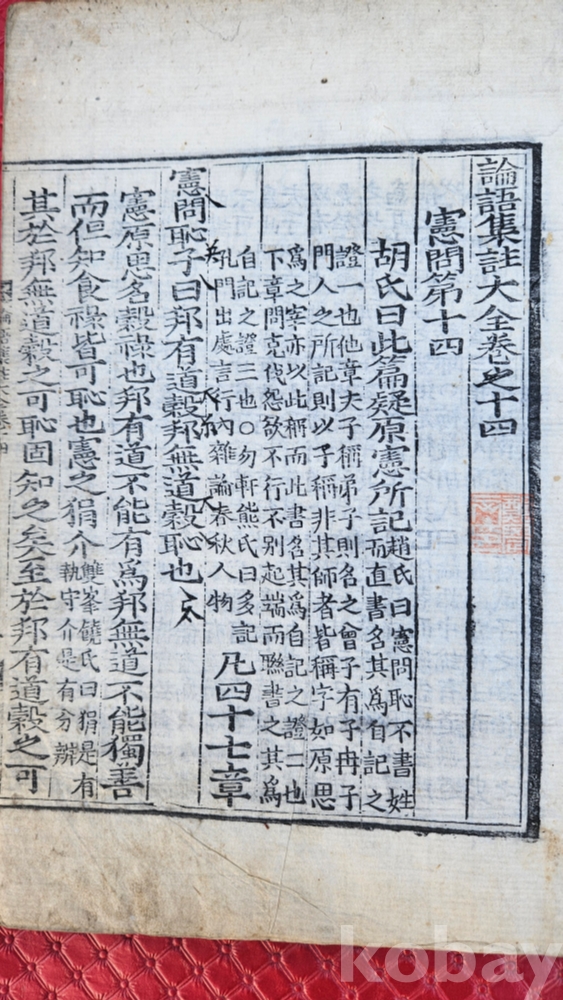 論語集註大全卷之十四
憲問第十四
胡氏曰此篇疑原憲所記
趙氏曰憲問恥不書姓
而直書名其爲自記之
證一也他章夫子稱弟子則名之曾子有子冉子
門人之所記則以子稱非其師者皆稱字如原思
爲之宰亦以此稱而此書名其爲自記之證二也
下章問克伐怨欲不行不别起端而聯書之其爲
自記之證三也○勿軒熊氏曰多記
孔門出處言行内雜論春秋人物
凡四十七章
憲問恥子曰邦有道穀邦無道穀恥也
憲原思名穀祿也邦有道不能有爲邦無道不能獨善
而但知食祿皆可恥也憲之狷介
雙峯饒氏曰狷是有
執守介是有分辨
其於邦無道穀之可恥固知之矣至於邦有道穀之可
kobay